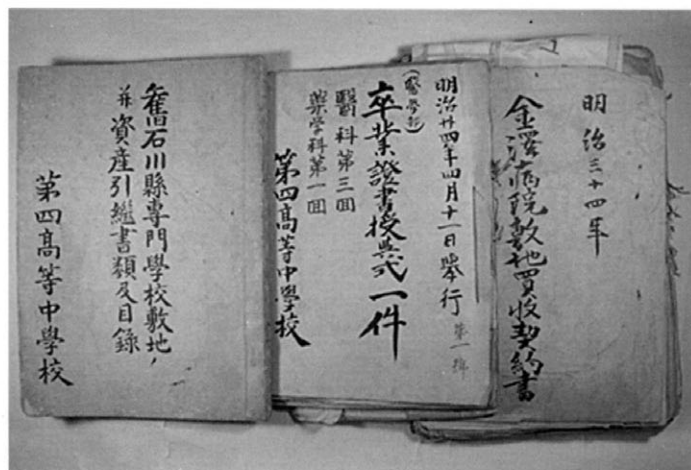 明治三十四年
金澤病院敷地買收契約書
明治廿四年四月十一日擧行
(醫學部)
卒業證書授與式一件
醫科第三回
藥学科第一回
第四高等中學校
第一輯
舊石川縣專門學校敷地ノ
并資産引繼書類及目録
第四高等中學校